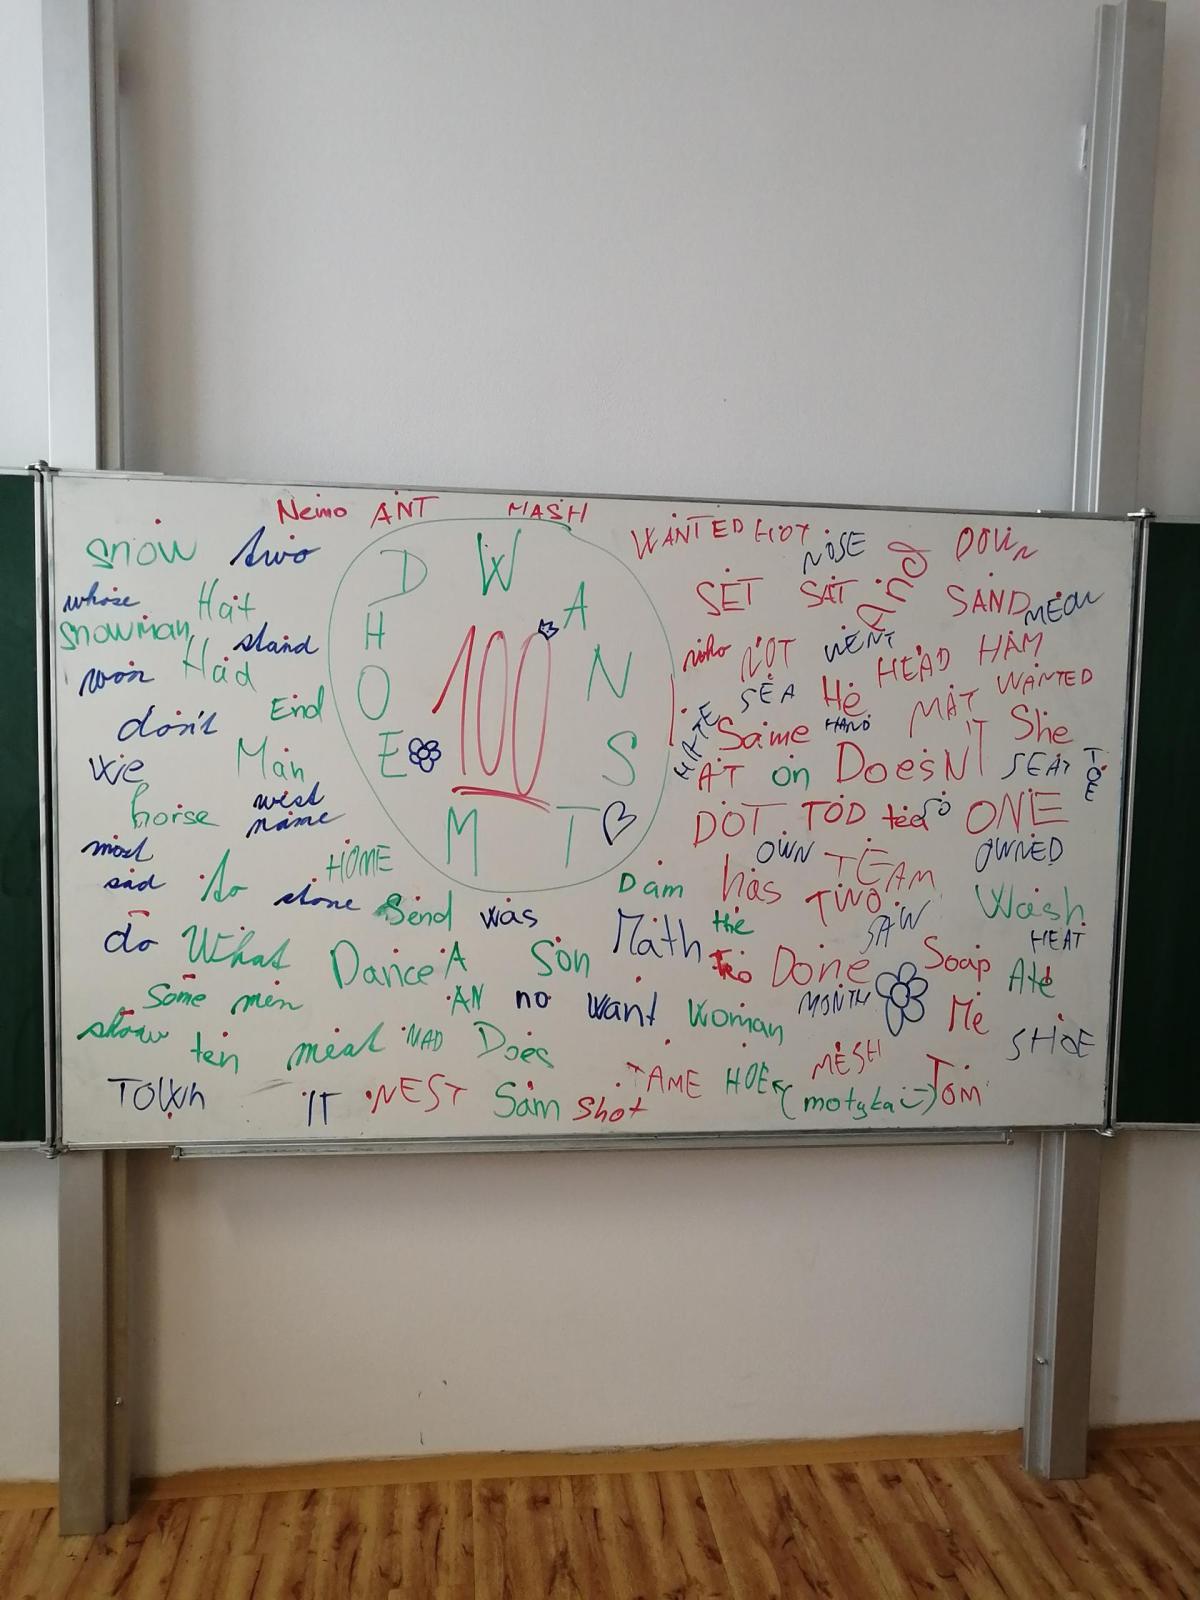 Nemo ANT MASH
WANTED HOT NOSE DOWN
snow two D W
whose Hat H A SET SAT And SAND MEOW
snowman stand
won Had O 100 N who NOT WENT HEAD HAM
End SEA He MAT WANTED
don't HATE Same HAND She
We Man E S AT on DoesN'T SEAT TOE
horse west
name M T DOT TOD tea SO ONE
most HOME OWN TEAM OWNED
sad to stone Send was Dam has TWO Wash
do What Dance A Son Math the SAW HEAT
to Done Soap Ate
Some men AN no want Woman MONTH Me
show ten meat MAD Does SHOE
TOWN IT NEST Sam Shot TAME HOE (motyka :-) MESH TOM